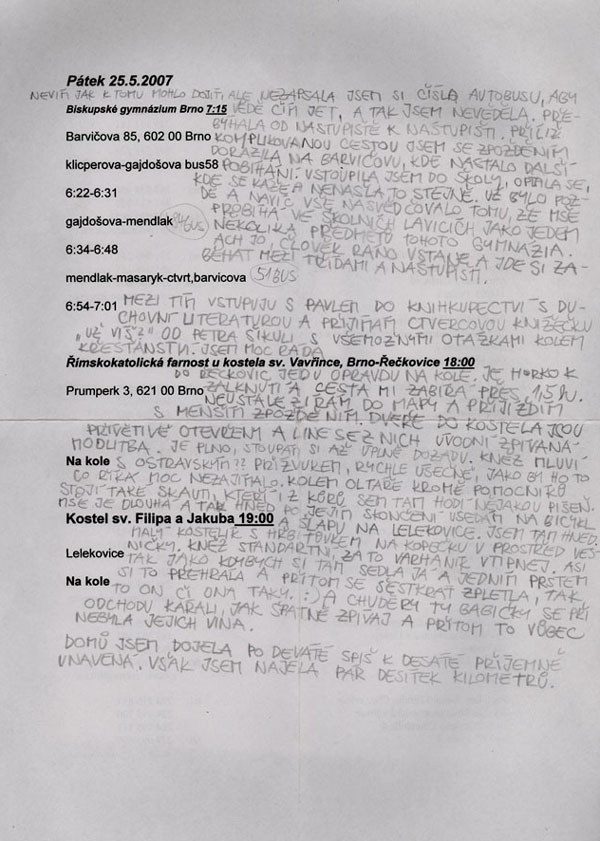 Pátek 25.5.2007
NEVÍM JAK K TOMU MOHLO DOJÍT, ALE NEZAPSALA JSEM SI ČÍSLA AUTOBUSU, ABY
Biskupské gymnázium Brno 7:15 VĚDĚ ČÍM JET, A TAK JSEM NEVĚDĚLA. PŘE-
BÝHALA OD NÁSTUPIŠTĚ K NÁSTUPIŠTI. PŘÍLIŠ
Barvičova 85, 602 00 Brno KOMPLIKOVANOU CESTOU JSEM SE ZPOŽDĚNÍM
DORAZILA NA BARVIČOVU, KDE NASTALO DALŠÍ
klicperova-gajdošova bus58 POBÍHÁNÍ. VSTOUPILA JSEM DO ŠKOLY, OPTALA SE,
KDE SE KÁŽE A NENAŠLA TO STEJNĚ. UŽ BYLO POZ-
6:22-6:31 DĚ A NAVÍC VŠE NASVĚDČOVALO TOMU, ŽE MŠE
PROBÍHÁ VE ŠKOLNÍCH LAVICÍCH JAKO JEDEN
gajdošova-mendlak BUS NĚKOLIKA PŘEDMĚTŮ TOHOTO GYMNÁZIA.
ACH JO, ČLOVĚK RÁNO VSTANE A JDE SI ZA-
6:34-6:48 BĚHAT MEZI TŘÍDAMI A NÁSTUPIŠTI.
mendlak-masaryk-ctvrt,barvicova 51 BUS
6:54-7:01 MEZI TÍM VSTUPUJU S PAVLEM DO KNIHKUPECTVÍ S DU-
CHOVNÍ LITERATUROU A PŘIJÍMÁM ČTVERCOVOU KNÍŽEČKU
„UŽ VÍŠ?“ OD PETRA ŠIKULI S VŠEMOŽNÝMI OTÁZKAMI KOLEM
KŘESŤANSTVÍ. JSEM MOC RÁDA
Římskokatolická farnost u kostela sv. Vavřince, Brno-Řečkovice 18:00
DO ŘEČKOVIC JEDU OPRAVDU NA KOLE. JE HORKO K
Prumperk 3, 621 00 Brno ZALKNUTÍ A CESTA MI ZABÍRÁ PŘES 1,5 h.
NEUSTÁLE ZÍRÁM DO MAPY A PŘIJÍŽDÍM
S MENŠÍM ZPOŽDĚNÍM. DVEŘE DO KOSTELA JSOU
PŘÍVĚTIVĚ OTEVŘENY A LINE SE Z NICH ÚVODNÍ ZPÍVANÁ
MODLITBA. JE PLNO, STOUPÁM SI AŽ ÚPLNĚ DOZADU. KNĚZ MLUVÍ
Na kole S OSTRAVSKÝM?? PŘÍZVUKEM, RYCHLE ÚSEČNĚ, JAKO BY HO TO
CO ŘÍKÁ MOC NEZAJÍMALO. KOLEM OLTÁŘE KROMĚ POMOCNÍKŮ
STOJÍ TAKÉ SKAUTI, KTEŘÍ Z KŮRU SEM TAM HODÍ NĚJAKOU PÍSEŇ.
MŠE JE DLOUHÁ A TAK HNED PO JEJÍM SKONČENÍ USEDÁM NA BICYKL
Kostel sv. Filipa a Jakuba 19:00 A ŠLAPU NA LELEKOVICE. JSEM TAM HNED.
MALÝ KOSTELÍK S HŘBITŮVKEM NA KOPEČKU V PROSTŘED VES-
Lelekovice NIČKY. KNĚZ STANDARTNÍ, ZA TO VARHANÍK VTIPNEJ. ASI
TAK JAKO KDYBYCH SI TAM SEDLA JÁ A JEDNÍM PRSTEM
Na kole SI TO PŘEHRÁLA A PŘITOM SE ŠESTKRÁT ZPLETLA, TAK
TO ON ČI ONA TAKY. :) A CHUDĚRY TY BABIČKY SE PŘI
ODCHODU KÁRALI, JAK ŠPATNĚ ZPÍVAJ A PŘITOM TO VŮBEC
NEBYLA JEJICH VINA.
DOMŮ JSEM DOJELA PO DEVÁTÉ SPÍŠ K DESÁTÉ PŘÍJEMNĚ
UNAVENÁ. VŠAK JSEM NAJELA PÁR DESÍTEK KILOMETRŮ.